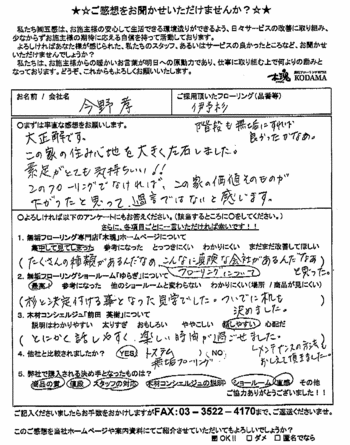 ★☆ご感想をお聞かせいただけませんか?☆★
私たち㈱五感は、お施主様の安心して生活できる環境造りができるよう、日々サービスの改善に取り組み、
少なからずお施主様の期待に応える自信を持って活動しております。
よろしければあなた様が感じられた、私たちのスタッフ、あるいはサービスの良かったところなど、お聞かせ
いただけませんでしょうか?
私たちは、お施主様からの暖かいお言葉が明日への原動力であり、仕事に取り組む上で何よりの励みと
なっております。どうぞ、これからもよろしくお願いいたします。
無垢フローリング専門店
木魂 KODAMA
お名前/会社名
今野 孝
ご採用頂いたフローリング(品番等)
伊予杉
○まずは率直な感想をお願いします。
階段も無垢にすれば
良かったかなぁ。
大正解です。
この家の住み心地を大きく左右しました。
素足がとても気持ちいい!!
このフローリングでなければ、この家の価値そのものが
下がったと思って過言ではないと感じます。
○よろしければ以下のアンケートにもお答えください。(該当するところに○をしてください。)
さらに、各項目ごとに一言いただければ幸いです!!
1. 無垢フローリング専門店「木魂」ホームページについて
集中して見てしまった 参考になった とっつきにくい わかりにくい まだまだ改善してほしい
(たくさんの種類があるんだなぁ、こんなに真険な会社があるんだなぁ)と思った。
2. 無垢フローリングショールーム「ゆらぎ」について
フローリングについて
最高! 参考になった 他のショールームと変わらない わかりにくい(場所 / 商品が見にくい)
(杉と決定付ける事となった見学でした。ついでに机も)
決めました。
3. 木材コンシェルジュ「前田 英樹」について
説明はわかりやすい 太りすぎ おもしろい ややこしい 話しやすい 心配だ
(とにかく話しやすく、楽しい時間が過ごせました。)
メンテナンスの方法も
おしえて頂きました。
4. 他社と比較されましたか? (YES) (NO)
無垢フローリング
5. 弊社でご購入される決め手となったものは?
商品の質 値段 スタッフの対応 木材コンシェルジュの説明 ショールーム 直感 その他
ご協力ありがとうございました!!
ご記入くださいましたらお手数をおかけしますがFAX:03-3522-4170まで、ご返送くださいませ。
このご感想を当社ホームページや案内資料にてご紹介させていただいてもよろしいでしょうか?
☑OK!! □ダメ □匿名でなら